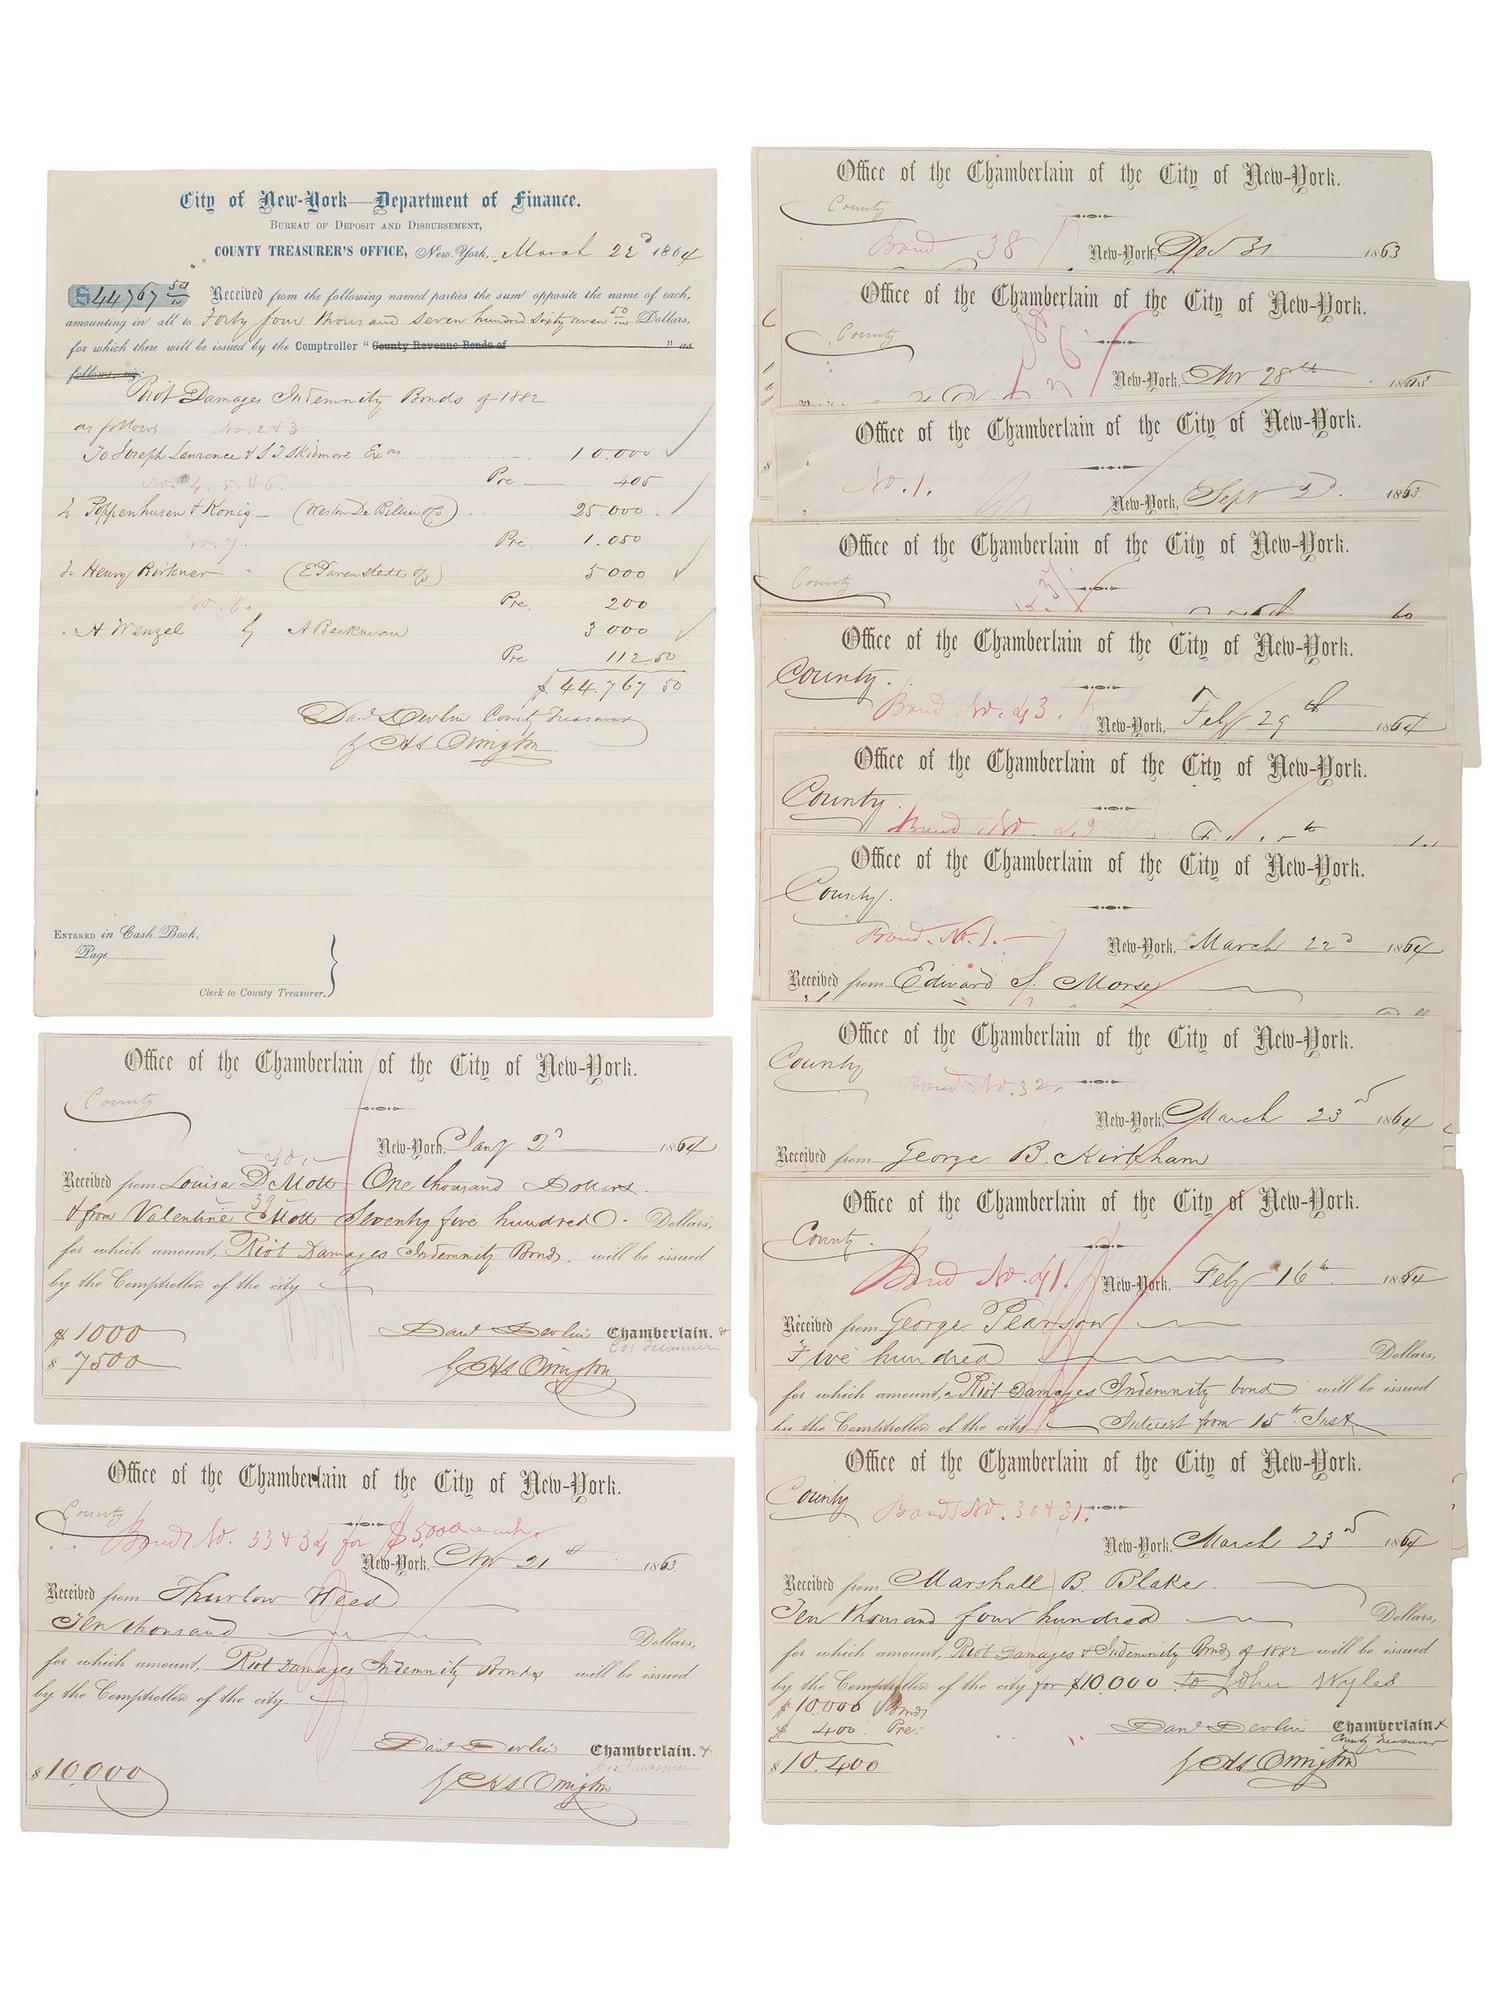 City of New-York—Department of Finance.
Bureau of Deposit and Disbursement,
COUNTY TREASURER'S OFFICE, New-York, March 22d 1864
$44767 50/100 Received from the following named parties the sum opposite the name of each,
amounting in all to Forty four thousand seven hundred sixty seven 50/100 Dollars,
for which there will be issued by the Comptroller "County Revenue Bonds of " as
follows, viz:
Riot Damages Indemnity Bonds of 1882
as follows No. 2 & 3
To Joseph Lawrence & S T Skidmore Exrs 10.000
No. 4. 5. & 6. Pre — 405
Poppenhusen & Konig — 25 000
No. 7. Pre. 1.050
Henry (E Pavenstedt 5 000
No. 8. Pre. 200
H Wenzel by A Beekman 3 000
Pre. 112.50
$ 44.767 50
Danl Devlin County Treasurer
Entered in Cash Book,
Page
Clerk to County Treasurer.
Office of the Chamberlain of the City of New-York.
County
New-York, Jany 2d 1864
40.
Received from Louisa D Mott One thousand Dollars.
39
& from Valentine Mott Seventy five hundred Dollars,
for which amount, Riot Damages Indemnity Bonds. will be issued
by the Comptroller of the city
$ 1000 Danl Devlin Chamberlain. &
Co. Treasurer
$ 7500
Office of the Chamberlain of the City of New-York.
County
Bonds No. 33 & 34 for $5,000 each
New-York, Nov 21st 1863
Received from Thurlow Weed
Ten thousand Dollars,
for which amount, Riot Damages Indemnity Bonds will be issued
by the Comptroller of the city
Danl Devlin Chamberlain. &
Co. Treasurer
$ 10,000
Office of the Chamberlain of the City of New-York.
County
Bond 38 New-York, Dec 31 1863
Office of the Chamberlain of the City of New-York.
County
New-York, Nov 28th 1863
Office of the Chamberlain of the City of New-York.
No. 1.
New-York, Sept 2d. 1863
Office of the Chamberlain of the City of New-York.
County
Office of the Chamberlain of the City of New-York.
County.
Bond No. 43. New-York, Feby 29th 1864
Office of the Chamberlain of the City of New-York.
County.
Bond No.
Office of the Chamberlain of the City of New-York.
County.
Bond. No. 1. New-York, March 22d 1864
Received from Edward S. Morse
Office of the Chamberlain of the City of New-York.
County
Bond No. 32.
New-York, March 23d 1864
Received from George B. Kirkham
Office of the Chamberlain of the City of New-York.
County.
Bond No. 41. New-York, Feby 16th 1864
Received from George Pearson
Five hundred Dollars,
for which amount, a Riot Damages Indemnity bond will be issued
by the Comptroller of the city Interest from 15th Inst
Office of the Chamberlain of the City of New-York.
County
Bonds No. 30 & 31.
New-York, March 23d 1864
Received from Marshall B. Blake
Ten thousand four hundred Dollars,
for which amount, Riot Damages Indemnity Bonds of 1882 will be issued
by the Comptroller of the city for $10.000 to John Wyles
$ 10.000 Bonds
$ 400 Pre: Danl Devlin Chamberlain &
County Treasurer
$ 10.400